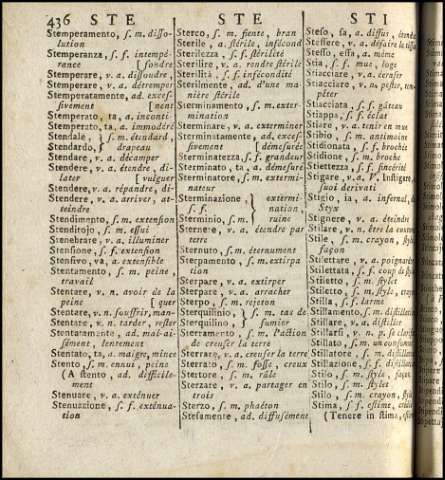 436 STE STE STI
Stemperamento, ſ. m. diſſo-
lution
Stemperanza, ſ. f. intempé-
rance [ fondre
Stemperare, v. a. diſſoudre,
Stemperare, v. a. détremper
Stemperatamente, ad. exceſ-
ſivement [ nent
Stemperato, ta, a. inconti-
Stemperato, ta, a. immodéré
Stendale, } ſ. m. étendard,
Stendardo, ſ. drapeau
Stendare, v. a. décamper
Stendere, v. a. étendre, di-
later [ vulguer
Stendere, v. a. répandre, di-
Stendere, v. a. arriver, at-
teindre
Stendimento, ſ. m. extenſion
Stenditojo, ſ. m. eſſui
Stenebrare, v. a. illuminer
Stenſione, ſ. f. extenſion
Stenſivo, va, a. extenſible
Stentamento, ſ. m. peine,
travail
Stentare, v. n. avoir de la
peine [ quer
Stentare, v. n. ſouffrir, man-
Stentare, v. n. tarder, reſter
Stentatamente, ad. mal-ai-
ſément, lentement
Stentato, ta, a. maigre, mince
Stento, ſ. m. ennui, peine
(A ſtento, ad. difficile-
ment
Stenuare, v. a. exténuer
Stenuazione, ſ. f. exténua-
tion
Sterco, ſ. m. fiente, bran
Sterile, a. ſtérile, infécond
Sterilezza, ſ. f. ſtérilité
Sterilire, v. a. rendre ſtérile
Sterilità, ſ. f. infécondité
Sterilmente, ad. d'une ma-
nière ſtérile
Sterminamento, ſ. m. exter-
mination
Sterminare, v. a. exterminer
Sterminatamente, ad. exceſ-
ſivement [ démeſurée
Sterminatezza, ſ. f. grandeur
Sterminato, ta, a. démeſuré
Sterminatore, ſ. m. extermi-
nateur
Sterminazione, } extermi-
ſ. f. nation,
Sterminio, ſ. m. ruine
Sternere, v. a. étendre par
terre
Sternuto, ſ. m. éternument
Sterpamento, ſ. m. extirpa
tion
Sterpare, v. a. extirper
Sterpare, v. a. arracher
Sterpo, ſ. m. rejeton
Sterquilinio, } ſ. m. tas de
Sterquilino, fumier
Sterramento, ſ. m. l'action
de creuſer la terre
Sterrare, v. a. creuſer la terre
Sterrato, ſ. m. foſſe, creux
Stertore, ſ. m. râle
Sterzare, v. a. partager en
trois
Sterzo, ſ. m. phaéton
Steſamente, ad. diffuſément
Steſo, ſa, a. diſſus,
Steſſere, v. a. défaire le tiſſu
Steſſo, eſſa, a. même
Stia, ſ. f. mue, loge
Stiacciare, v. a. écraſer
Stiacciare, v. n. peſter,
pêter
Stiacciata, ſ. f. gâteau
Stiappa, ſ. f. éclat
Stiare, v. a. tenir en mue
Stibio, ſ. m. antimoine
Stidionata, ſ. f. brochée
Stidione, ſ. m. broche
Stiettezza, ſ. f. ſincérité
Stigare, v. a. V. Inſtigare,
ſuoi derivati
Stigio, ia, a. infernal, de
Styx
Stignere, v. a. éteindre
Stilare, v. n. être la coutume
Stile, ſ. m. crayon, ſtyle,
façon
Stilettare, v. a. poignarder
Stilettata, ſ. f. coup de
Stiletto, ſ. m. ſtylet
Stiletto, ſ. m. ſtyle,
Stilla, ſ. f. larme
Stillamento, ſ. m. diſtillation
Stillare, v. a. diſtiller
Stillarſi, v. n. p. ſe
Stillato, ſ. m. un conſommé
Stillatore, ſ. m. diſtillateur
Stillazione, ſ. f. diſtillation
Stilo, ſ. m. ſtyle, façon
Stilo, ſ. m. ſtylet
Stilo, ſ. m. crayon,
Stima, ſ. f. eſtime,
(Tenere in ſtima,